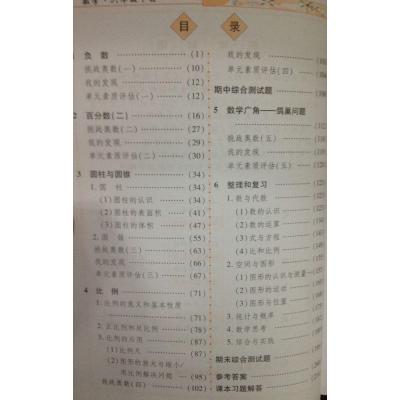 目 录
1 负 数 (1)
挑战奥数(一) (10)
我的发现 (12)
单元素质评估(一) (12)
2 百分数(二) (16)
挑战奥数(二) (27)
我的发现 (29)
单元素质评估(二) (30)
3 圆柱与圆锥 (34)
1. 圆 柱 (34)
(1)圆柱的认识 (34)
(2)圆柱的表面积 (41)
(3)圆柱的体积 (47)
2. 圆 锥 (55)
挑战奥数(三) (63)
我的发现 (66)
单元素质评估(三) (67)
4 比 例 (71)
1. 比例的意义和基本性质
(71)
2. 正比例和反比例 (78)
3. 比例的应用 (87)
(1)比例尺 (87)
(2)图形的放大与缩小/
用比例解决问题 (95)
挑战奥数(四) (102)
我的发现
单元素质评估(四)
期中综合测试题
5 数学广角——鸽巢问题
挑战奥数(五)
我的发现
单元素质评估(五)
6 整理和复习
1. 数与代数
(1)数的认识
(2)数的运算
(3)式与方程
(4)比和比例
2. 空间与图形
(1)图形的认识与测量
(2)图形的运动
(3)图形与位置
3. 统计与概率
4. 数学思考
5. 综合与实践
期末综合测试题
参考答案
课本习题解答